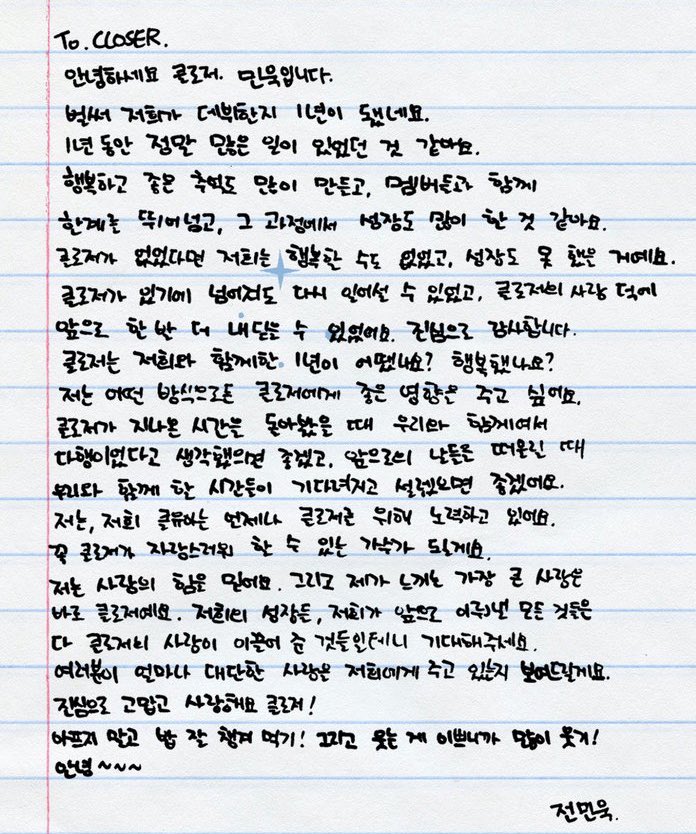 To. CLOSER.
안녕하세요 클로저. 민욱입니다.
벌써 저희가 데뷔한지 1년이 됐네요.
1년 동안 정말 많은 일이 있었던 것 같아요.
행복하고 좋은 추억도 많이 만들고, 멤버들과 함께
한계를 뛰어넘고, 그 과정에서 성장도 많이 한 것 같아요.
클로저가 없었다면 저희는 행복할 수도 없었고, 성장도 못 했을 거예요.
클로저가 있기에 넘어져도 다시 일어설 수 있었고, 클로저의 사랑 덕에
앞으로 한 발 더 내딛을 수 있었어요. 진심으로 감사합니다.
클로저는 저희와 함께한 1년이 어땠나요? 행복했나요?
저는 어떤 방식으로든 클로저에게 좋은 영향을 주고 싶어요.
클로저가 지나온 시간을 돌아봤을 때 우리와 함께여서
다행이었다고 생각했으면 좋겠고, 앞으로의 날들을 떠올릴 때
우리와 함께 할 시간들이 기다려지고 설렜으면 좋겠어요.
저는, 저희 클유아는 언제나 클로저를 위해 노력하고 있어요.
꼭 클로저가 자랑스러워 할 수 있는 가수가 될게요.
저는 사랑의 힘을 믿어요. 그리고 제가 느끼는 가장 큰 사랑은
바로 클로저예요. 저희의 성장들, 저희가 앞으로 이루어낼 모든 것들은
다 클로저의 사랑이 이끌어 준 것들일테니 기대해주세요.
여러분이 얼마나 대단한 사랑을 저희에게 주고 있는지 보여드릴게요.
진심으로 고맙고 사랑해요 클로저!
아프지 말고 밥 잘 챙겨 먹기! 그리고 웃는 게 이쁘니까 많이 웃기!
안녕~~~
전민욱.